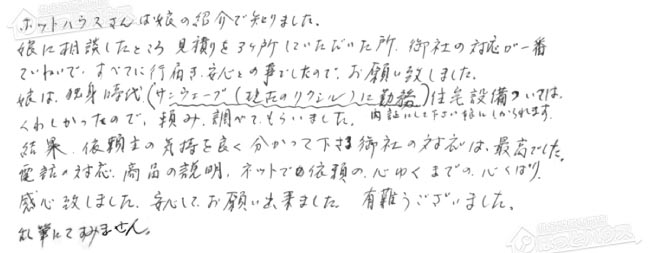 ホットハウスさんは娘の紹介で知りました。
娘に相談したところ 見積りを3ヶ所していただいた所、御社の対応が一番
ていねいで、すべてに行届き、安心との事でしたので、お願い致しました。
娘は、独身時代(サンウェーブ(現在のリクシル)に勤務)住宅設備ついては、
くわしかったので、頼み、調べてもらいました。内証にして下さい娘にしかられます。
結果、依頼主の気持を良く分かって下さる御社の対応は、最高でした。
電話の対応、商品の説明、ネットでの依頼の、心ゆくまでの、心くばり、
感心致しました、安心して、お願い出来ました 有難うございました。
乱筆にてすみません。